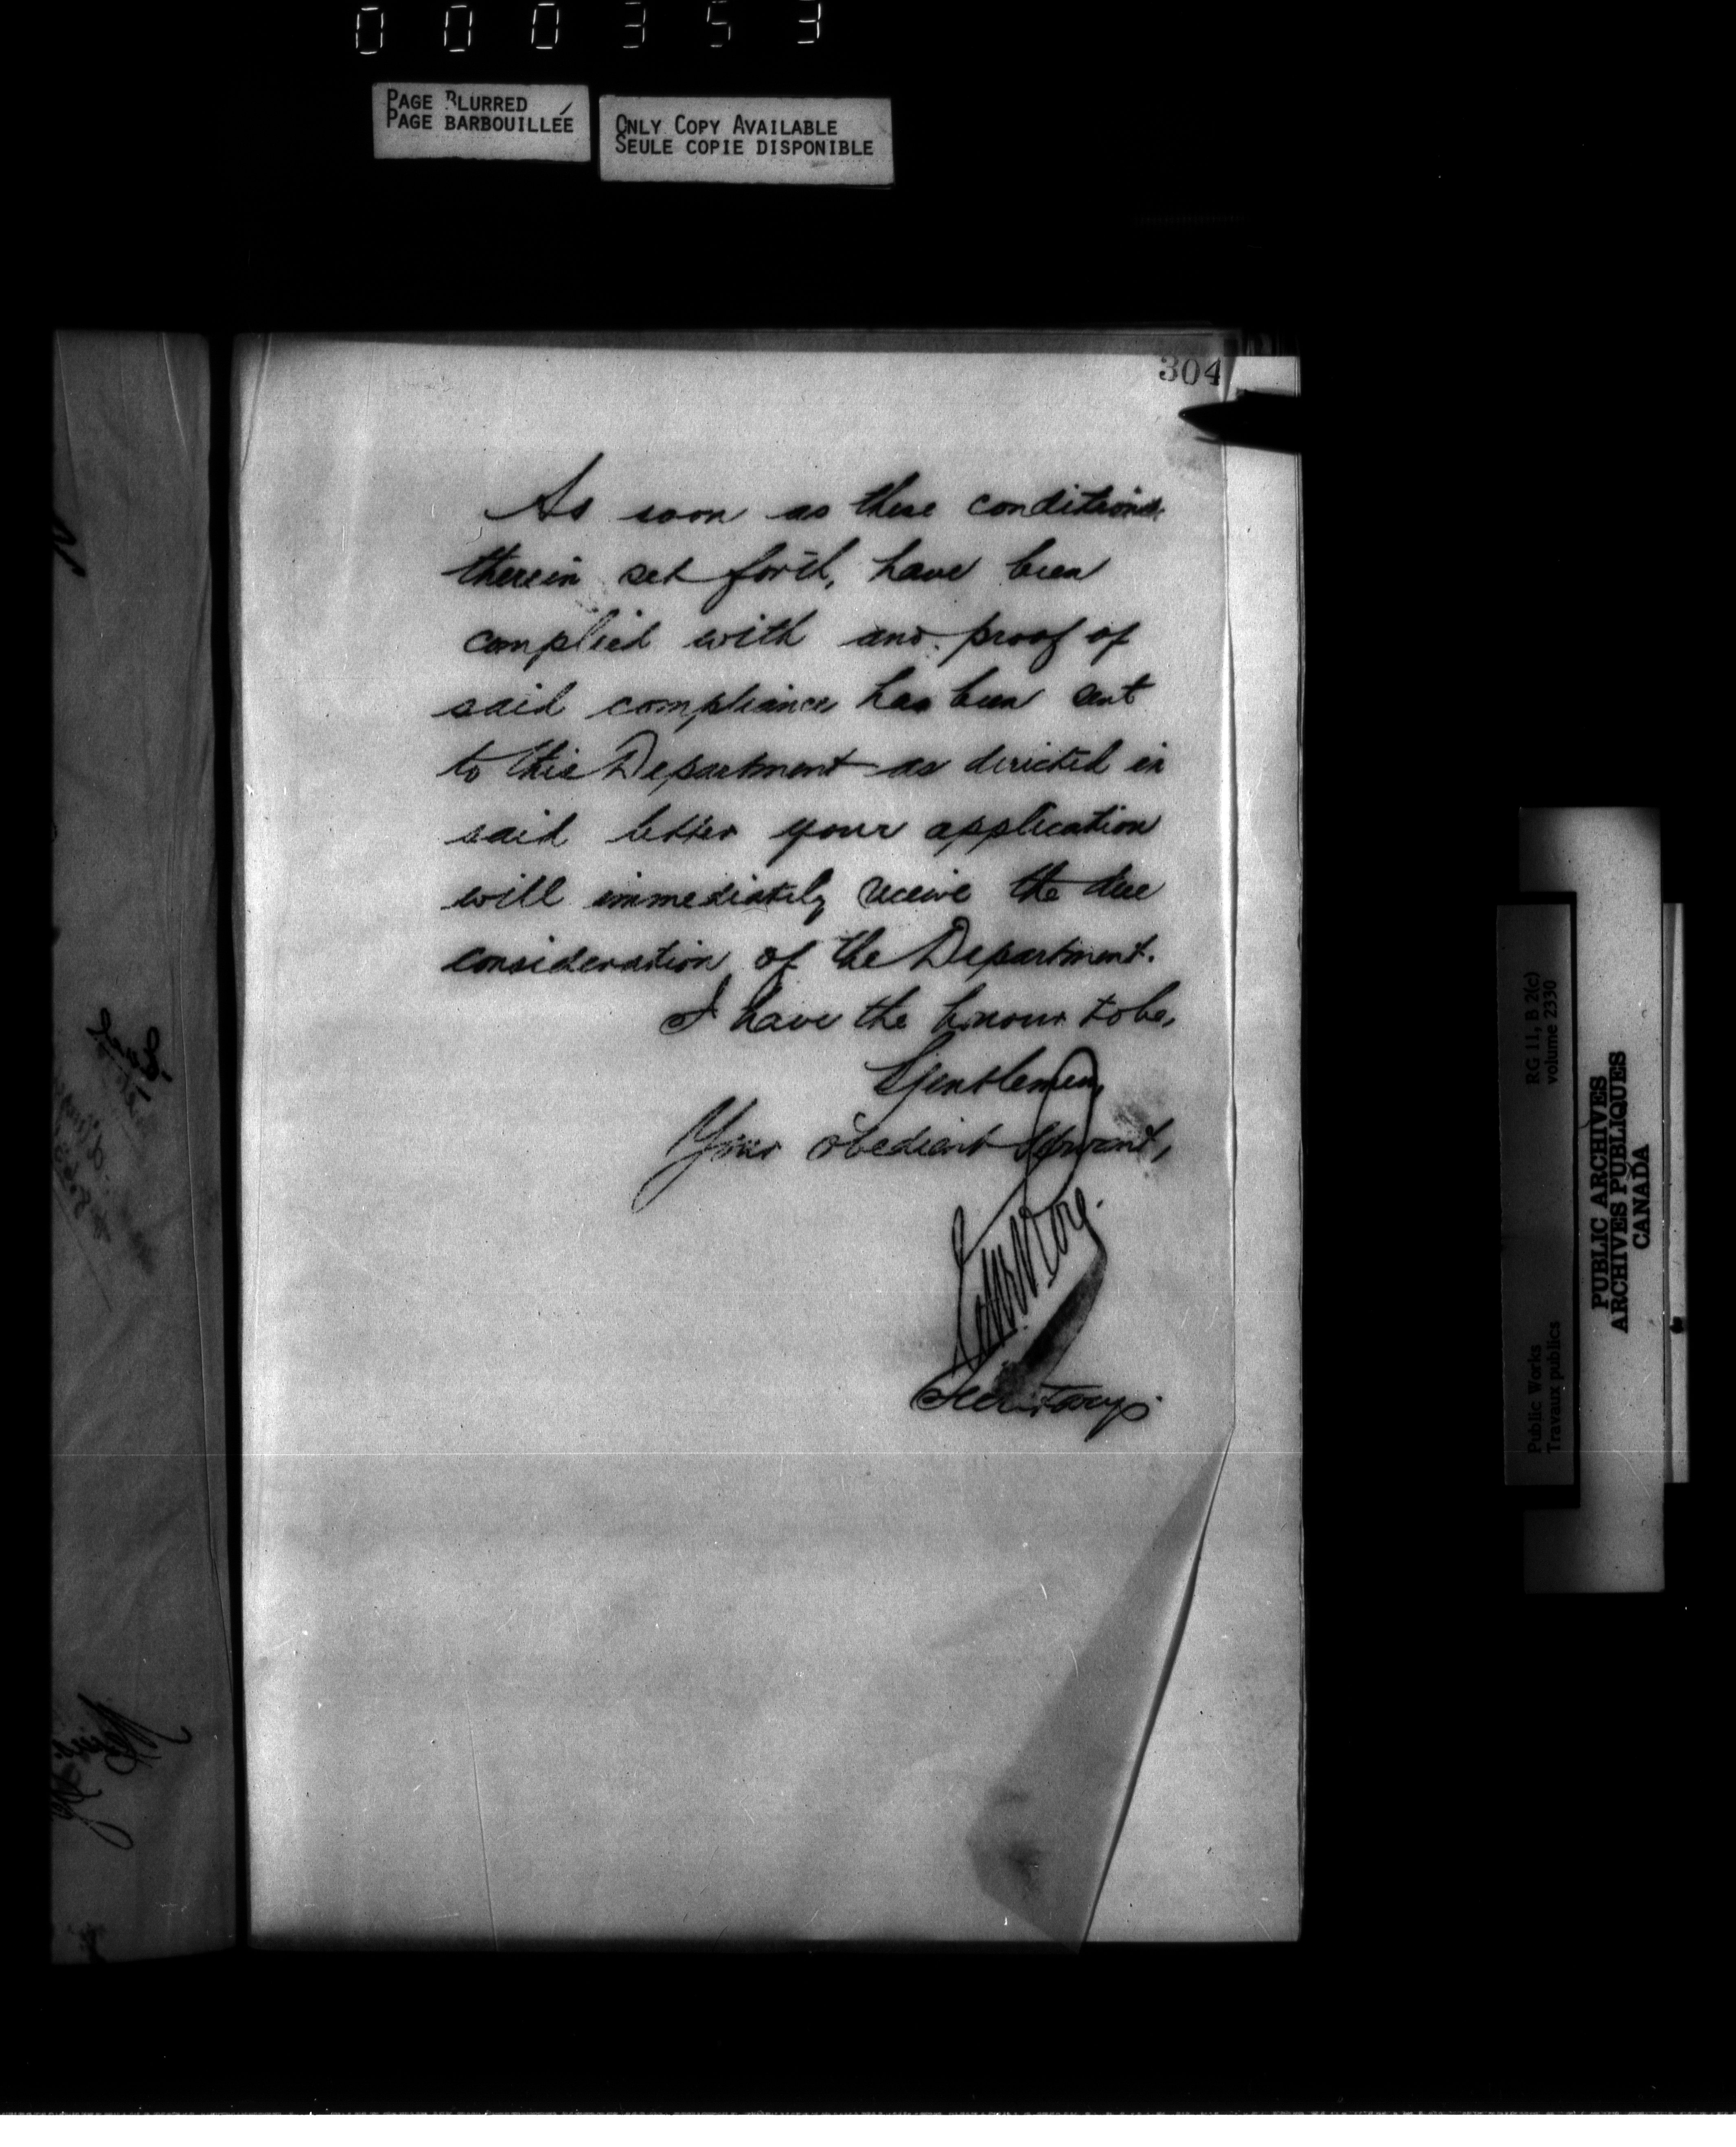 000353
PAGE BLURRED
PAGE BARBOUILLÉE
ONLY COPY AVAILABLE
SEULE COPIE DISPONIBLE
304
As soon as these conditions
therein set forth, have been
complied with and proof of
said compliance has been sent
to this Department as directed in
said letter your application
will immediately receive the due
consideration of the Department.
I have the honour to be,
Gentlemen,
Your obedient servant,
Secretary.
RG 11, B 2(c)
volume 2330
Public Works
Travaux publics
PUBLIC ARCHIVES
ARCHIVES PUBLIQUES
CANADA